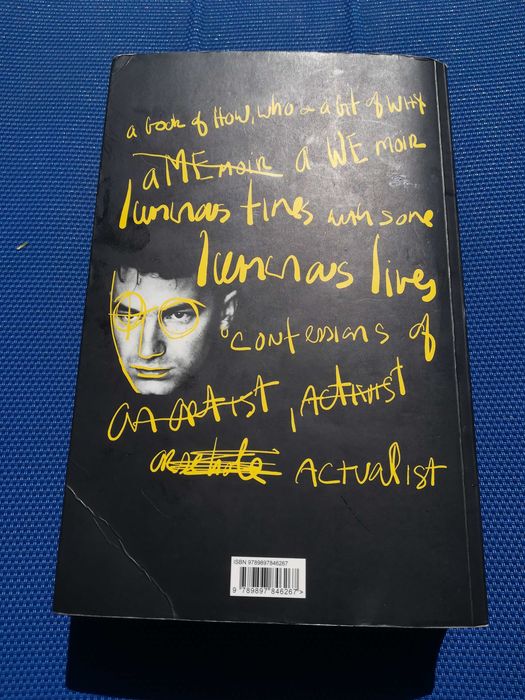 a book of HOW, WHO & a bit of WHY
a MEmoir a WE moir
luminous times with some
luminous lives
confessions of
an artist, Activist
ACTUALIST
ISBN 9789897846267
9 789897 846267>